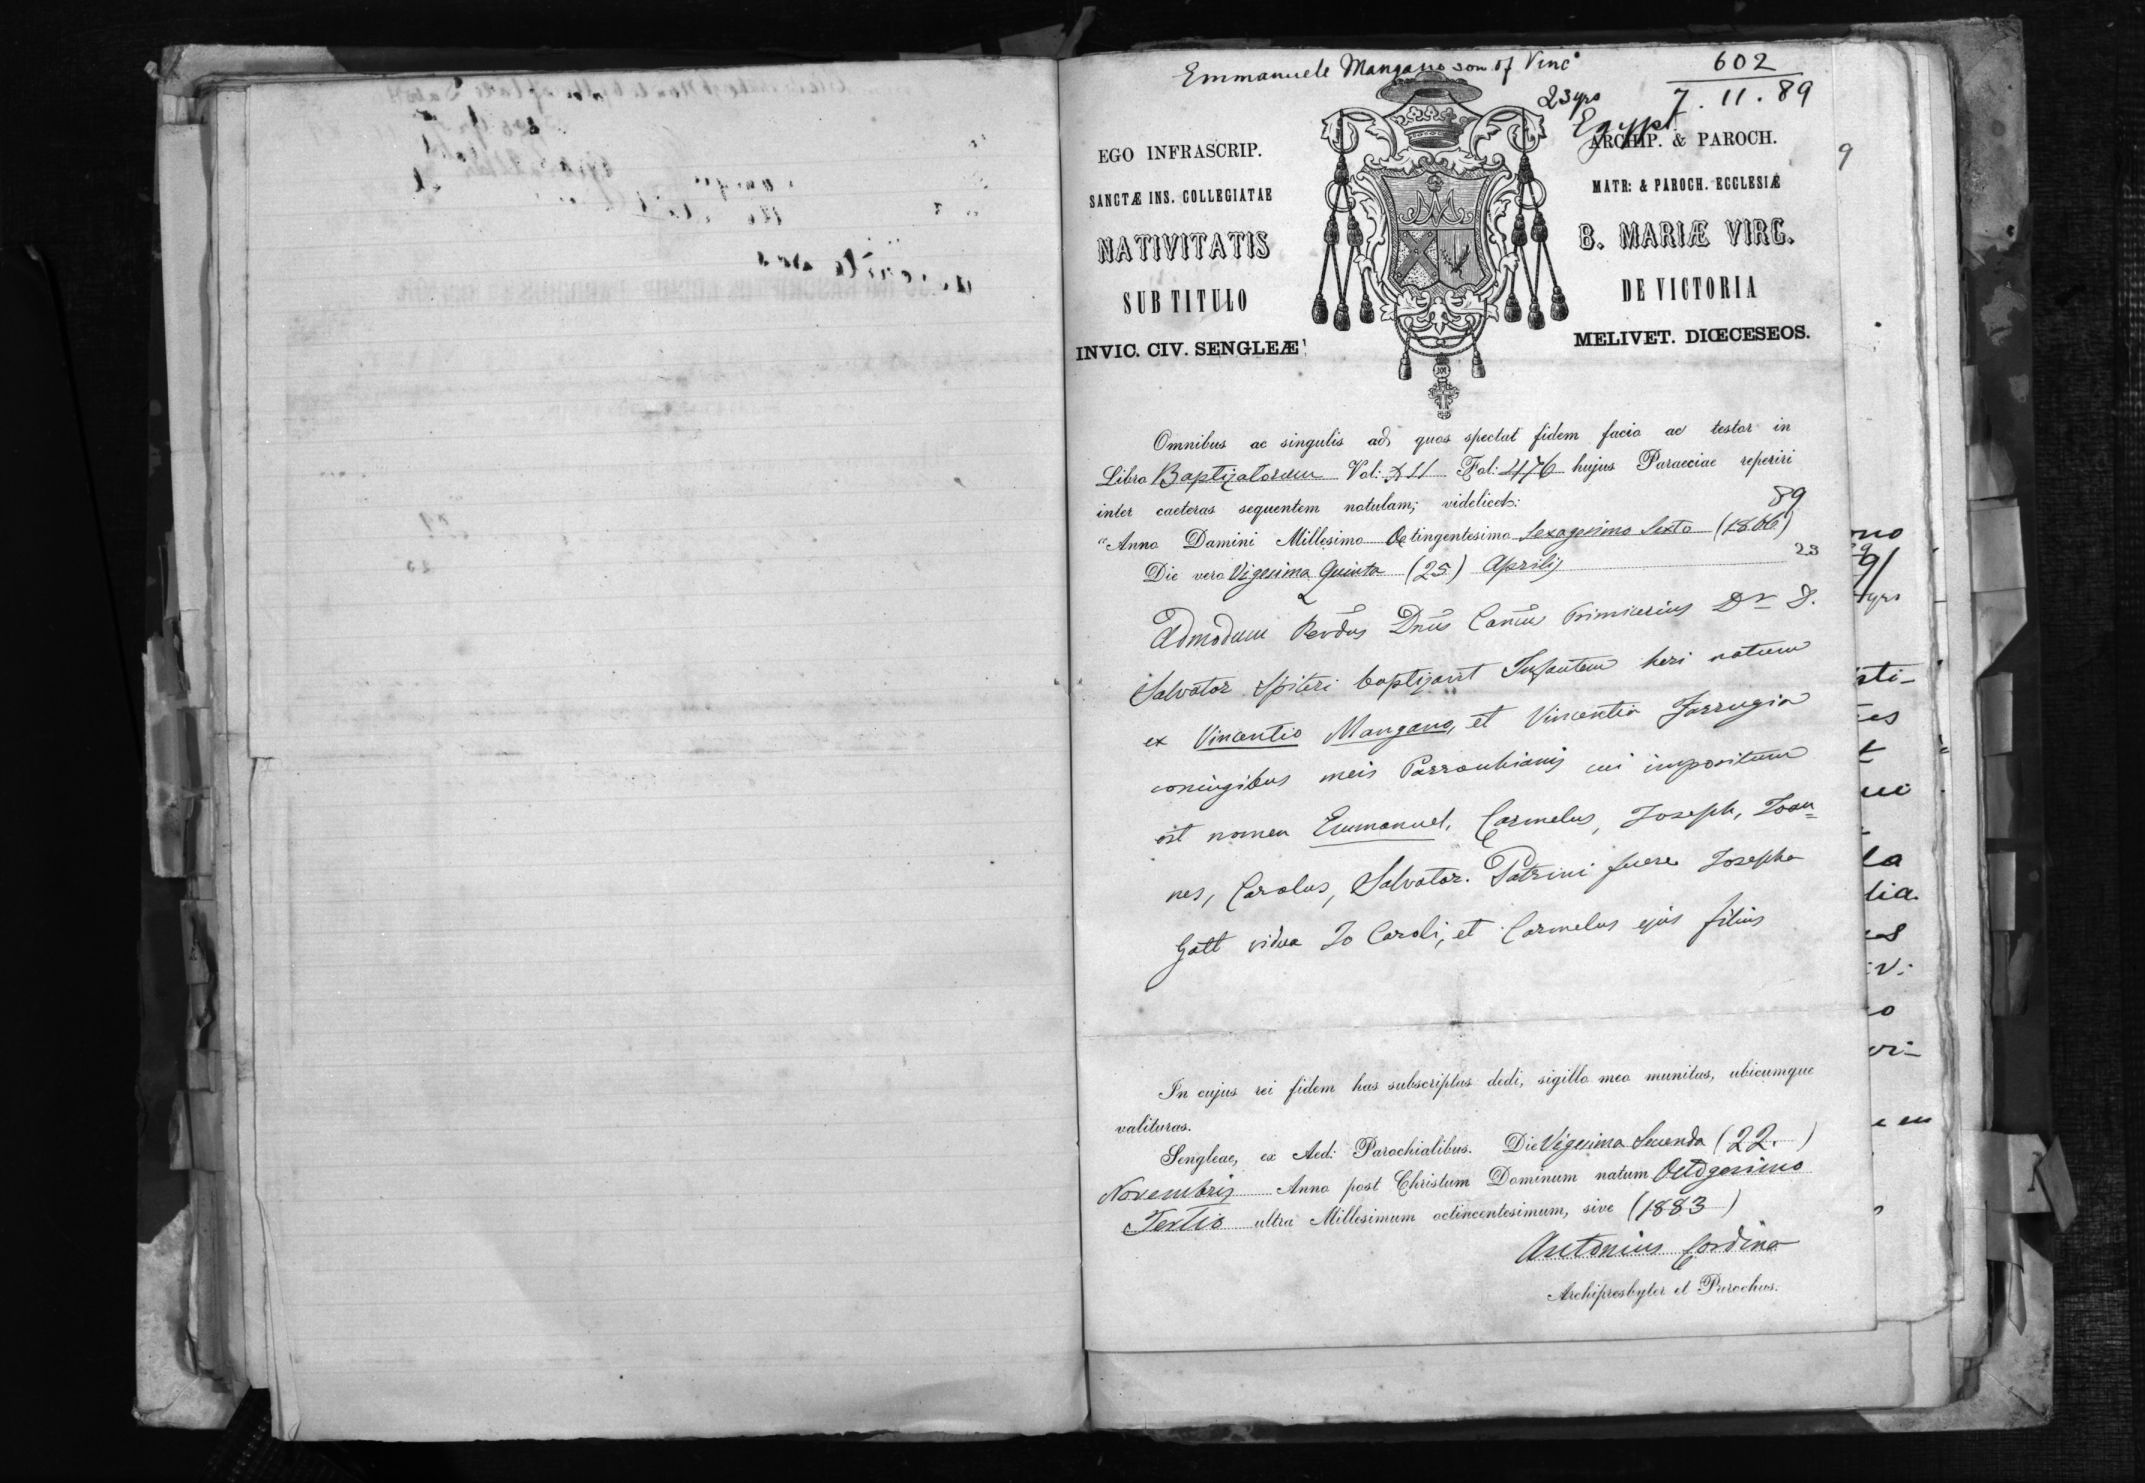 Emmanuele Mangano son of Vinc°
602
7.11.89
23 yrs
Egypt
EGO INFRASCRIP.
ARCHIP. & PAROCH.
SANCTÆ INS. COLLEGIATAE
MATR: & PAROCH. ECCLESIÆ
NATIVITATIS
B. MARIÆ VIRG.
SUB TITULO
DE VICTORIA
INVIC. CIV. SENGLEÆ
MELIVET. DIŒCESEOS.
9
Omnibus ac singulis ad quos spectat fidem facio ac testor in
Libro Baptizatorum Vol: Fol: 476 hujus Paraeciae reperiri
inter caeteras sequentem notulam; videlicet:
89
"Anno Domini Millesimo Octingentesimo Sexagesimo Sexto (1866)
23
Die vero Vigesima Quinta (25) Aprilis
Admodum Revdus Dnus Cancus Primicerius Dr D.
Salvator Spiteri baptizavit Infantem heri natum
ex Vincentio Mangano, et Vincentia Farrugia
coniugibus meis Parrochianis cui impositum
est nomen Emmanuel, Carmelus, Joseph, Joan=
nes, Carolus, Salvator. Patrini fuere Josepha
Gatt vidua Jo Caroli, et Carmelus ejus filius
In cujus rei fidem has subscriptas dedi, sigillo meo munitas, ubicumque
valituras.
Sengleae, ex Aed: Parochialibus. Die Vigesima Secunda (22.)
Novembris Anno post Christum Dominum natum Octogesimo
Tertio ultra Millesimum octincentesimum, sive (1883)
Antonius Cordina
Archipresbyter et Parochus.